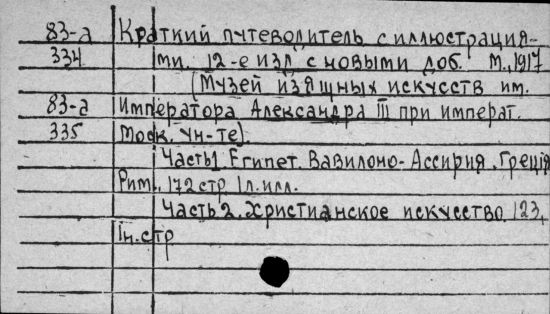 83-а Краткий путеводитель с иллюстрация-
334 ми. 12-е изд с новыми доб. М., 1917
(Музей изящных искусств им.
83-а Императора Александра III при императ.
335 Моск. Ун-те).
Часть 1. Египет. Вавилоно-Ассирия. Греція
Рим., 172 стр 1 л. илл.
Часть 2. Христианское искусство. 123,
Iн. стр